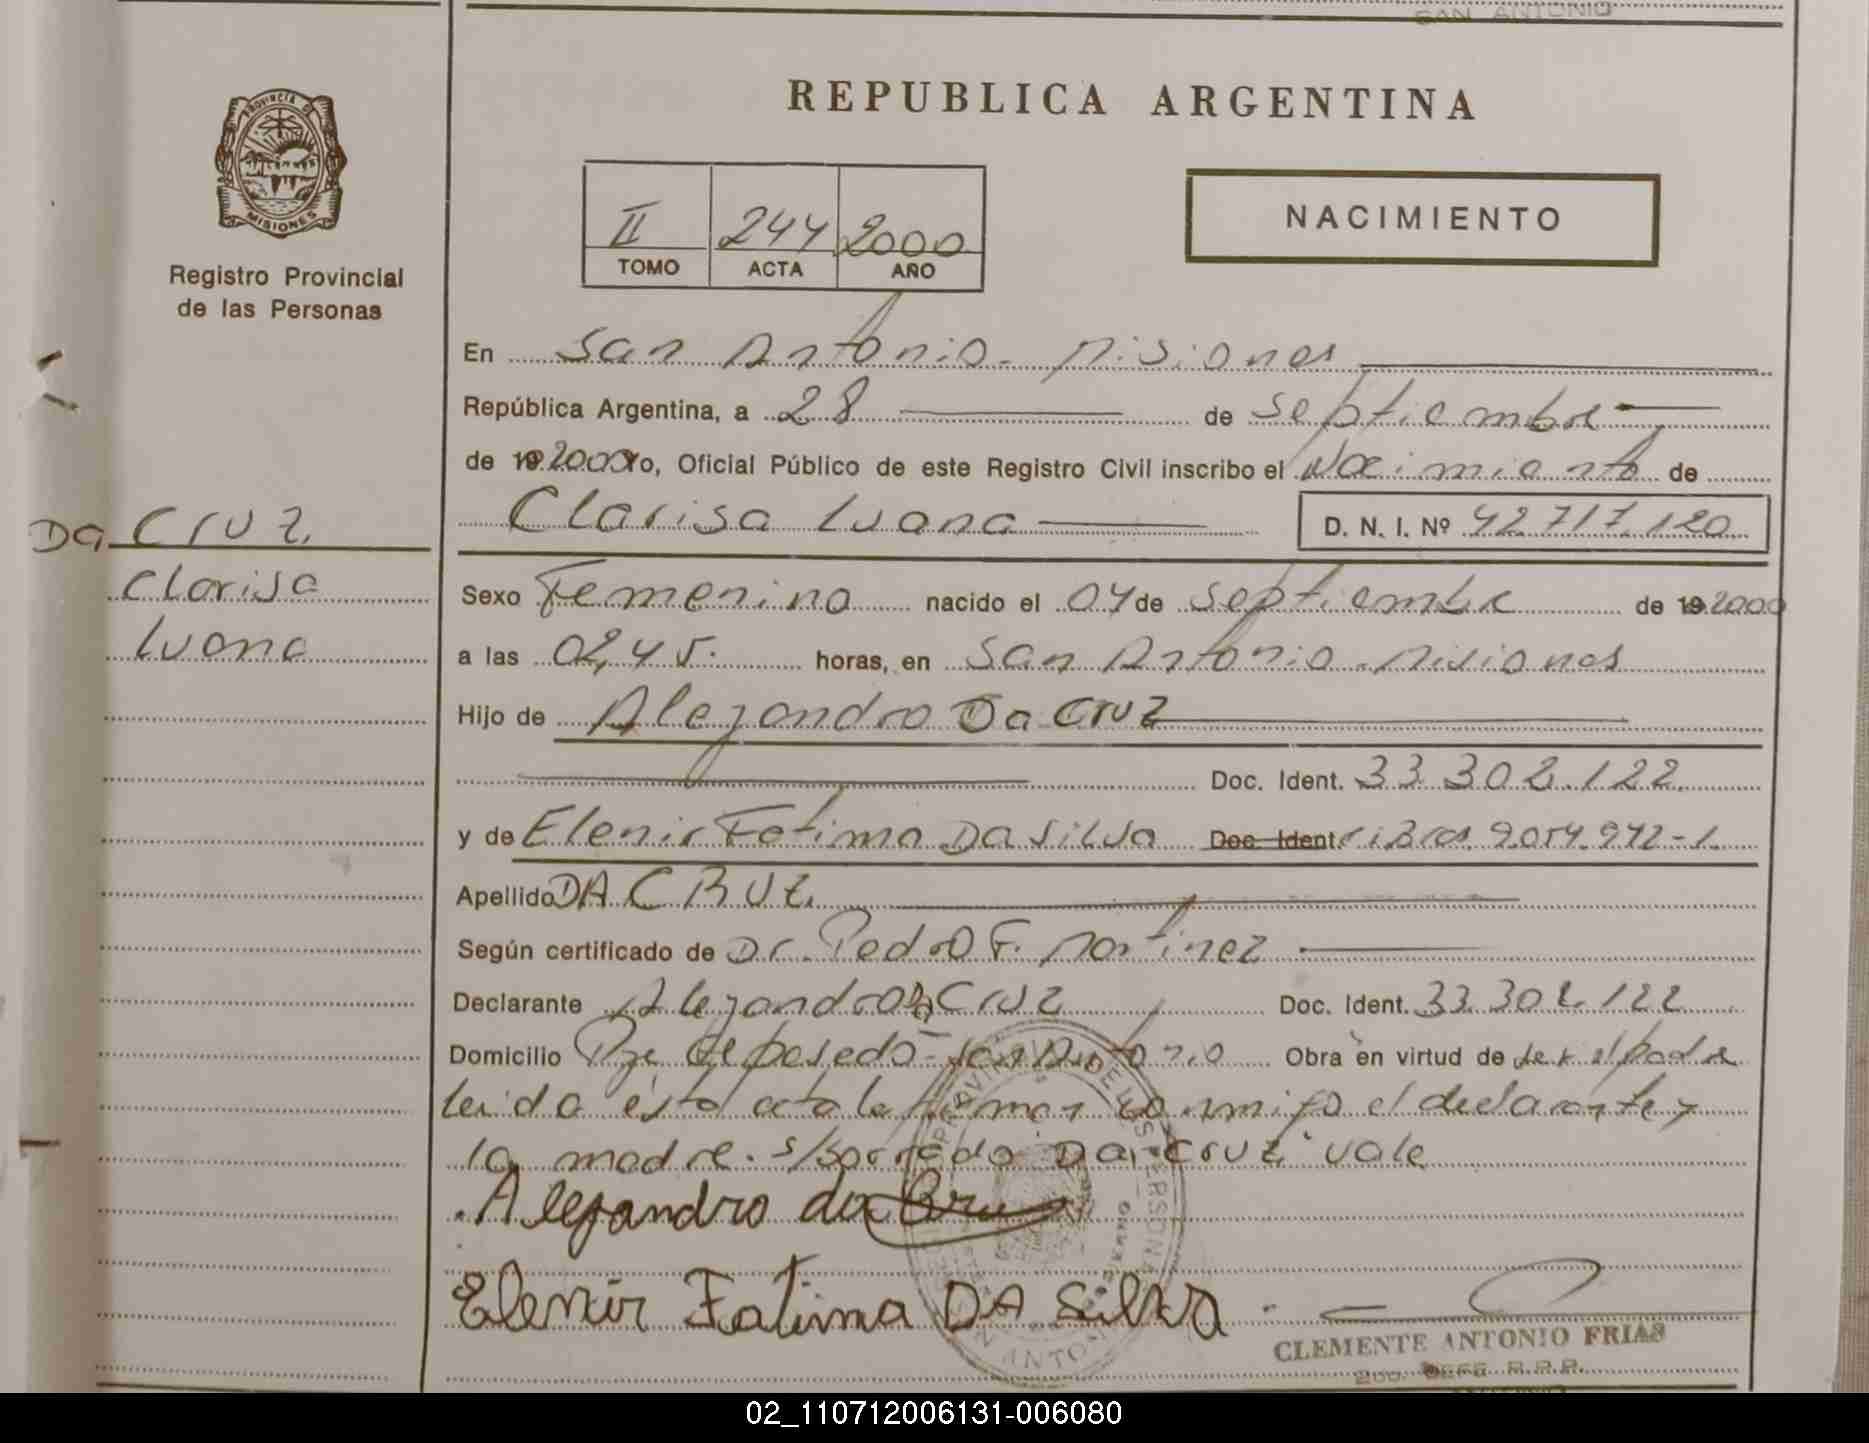 SAN ANTONIO
REPUBLICA ARGENTINA
PROVINCIA DE
MISIONES
Registro Provincial
de las Personas
II 244 2000
TOMO ACTA AÑO
NACIMIENTO
En San Antonio - Misiones
República Argentina, a 28 de Septiembre
de 19 2000 Yo, Oficial Público de este Registro Civil inscribo el Nacimiento de
Clarisa Luana D. N. I. Nº 42.717.120
Da Cruz
Clarisa
Luana
Sexo Femenino nacido el 04 de Septiembre de 19 2000
a las 02,45. horas, en San Antonio - Misiones
Hijo de Alejandro Da Cruz
Doc. Ident. 33.302.122
y de Elenir Fatima Da Silva Doc. Ident. 9.054.972-1
Apellido DA CRUZ
Según certificado de Dr. Pedro F. Martinez
Declarante Alejandro Da Cruz Doc. Ident. 33.302.122
Domicilio Pje San Antonio Obra en virtud de ser el padre
leida esta acta la firman conmigo el declarante y
la madre. s/borrado "Da Cruz" vale
Alejandro da Cruz
Elenir Fatima DA Silva
CLEMENTE ANTONIO FRIAS
2do. JEFE R.P.P.
02_110712006131-006080